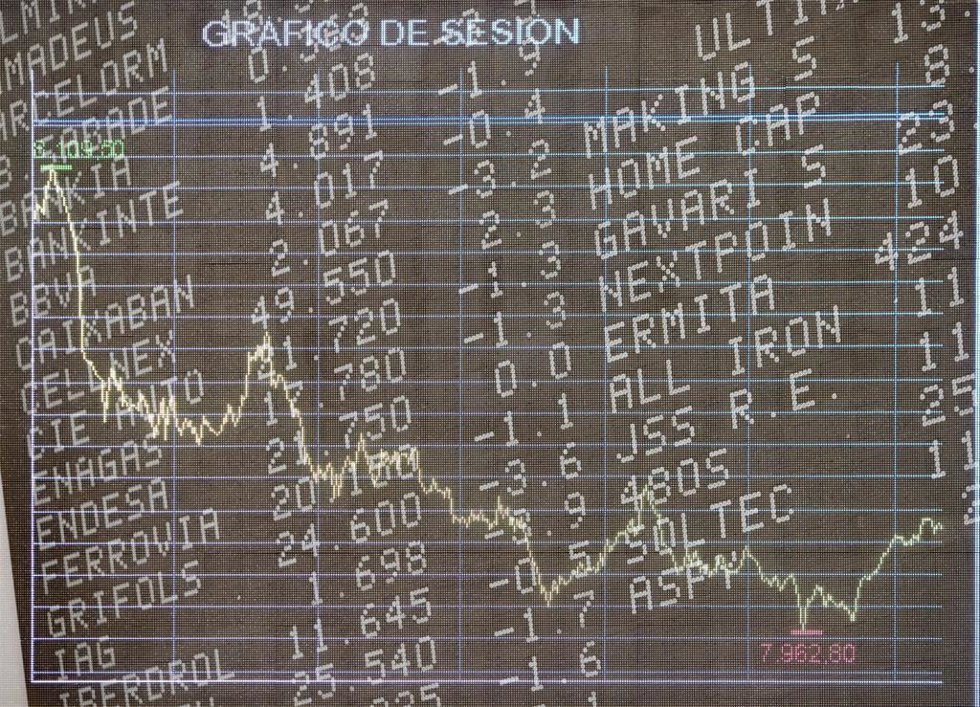 GRAFICO DE SESION
ULTI
AMADEUS 13.
ARCELORM
SABADE
BANKIA 1.408 -1.9
BANKINTE 4.891 -0.4 MAKING S 8
BBVA 4.017 -3.2 HOME CAP 23
CAIXABAN 2.067 2.3 GAVARI S 10
CELLNEX 49.550 -1.3 NEXTPOIN 424
CIE AUTO .720 -1.3 ERMITA 11
ENAGAS .780 0.0 ALL IRON 11
ENDESA .750 -1.1 JSS R.E. 25
FERROVIA 20.160 -3.6 480S 11
GRIFOLS 24.600 .9 SOLTEC
IAG 1.698 -0.5 ASPY
IBERDROL 11.645 -1.7
25.540 -1.6
7.962,80